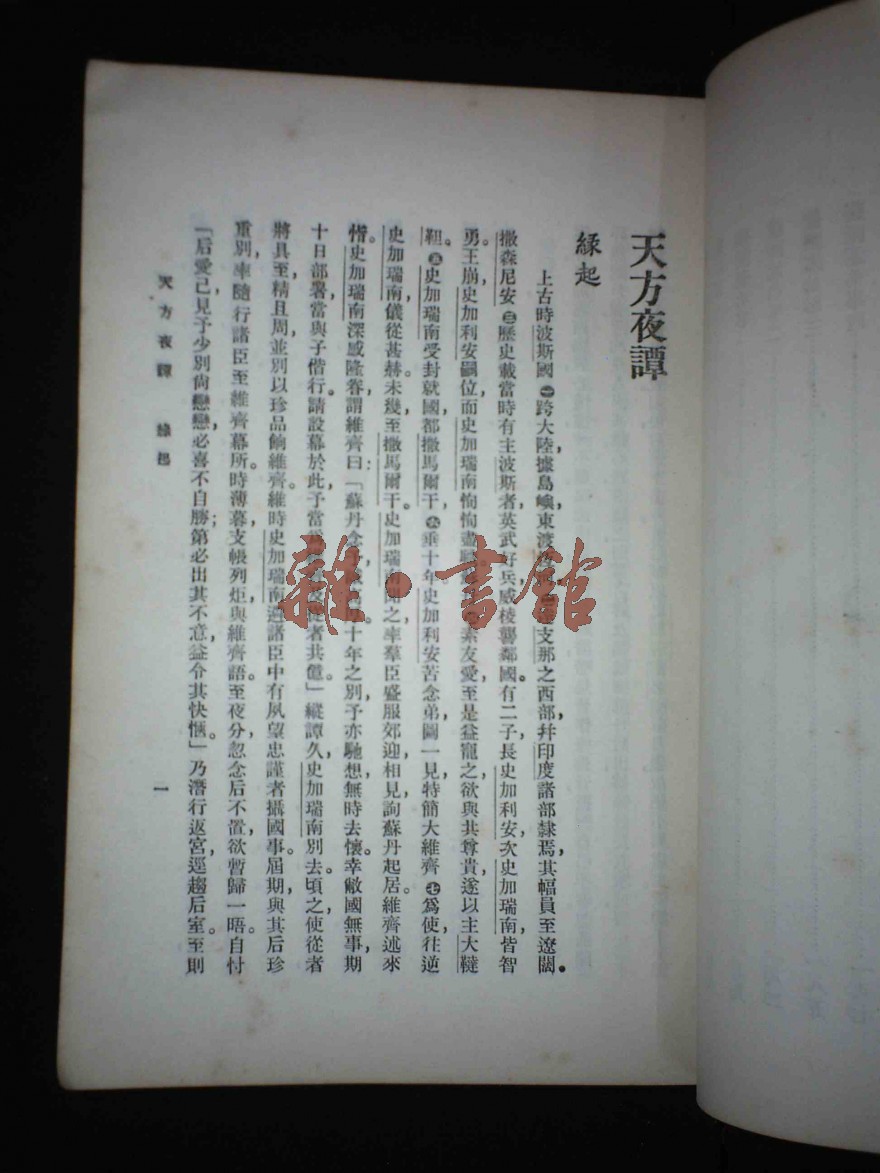 天方夜譚
緣起
上古時波斯國㊀跨大陸，據島嶼，東渡支那之西部，幷印度諸部隸焉，其幅員至遼闊。
撒森尼安㊂歷史載當時有主波斯者，英武好兵，威棱讋鄰國。有二子，長史加利安，次史加瑞南，皆智
勇。王崩，史加利安嗣位，而史加瑞南恂恂盡素友愛，至是益寵之，欲與其尊貴，遂以主大韃
靼。㊄史加瑞南受封就國，都撒馬爾干。㊅乘十年，史加利安苦念弟，圖一見，特簡大維齊㊆爲使往逆
史加瑞南，儀從甚赫，未幾至撒馬爾干。史加瑞南之，率羣臣盛服郊迎，相見，詢蘇丹起居，維齊述來
悟。史加瑞南深感隆眷，謂維齊曰：「蘇丹念十年之別，予亦馳想，無時去懷。幸敝國無事，期
十日部署，當與子偕行。請設幕於此，予當從者共億。」縱譚久，史加瑞南別去。頃之，使從者
將具至，精且周，並別以珍品餉維齊。維時史加瑞南遴諸臣中有夙望忠謹者攝國事。屆期，與其后珍
重別，率隨行諸臣至維齊幕所。時薄暮，支帳列炬，與維齊語。至夜分，忽念后不置，欲暫歸一晤，自忖
「后愛己，見予少別尙戀戀，必喜不自勝；第必出其不意，益令其快愜。」乃潛行返宮，逕趨后室。至則
天方夜譚　緣起
一
雜·書館